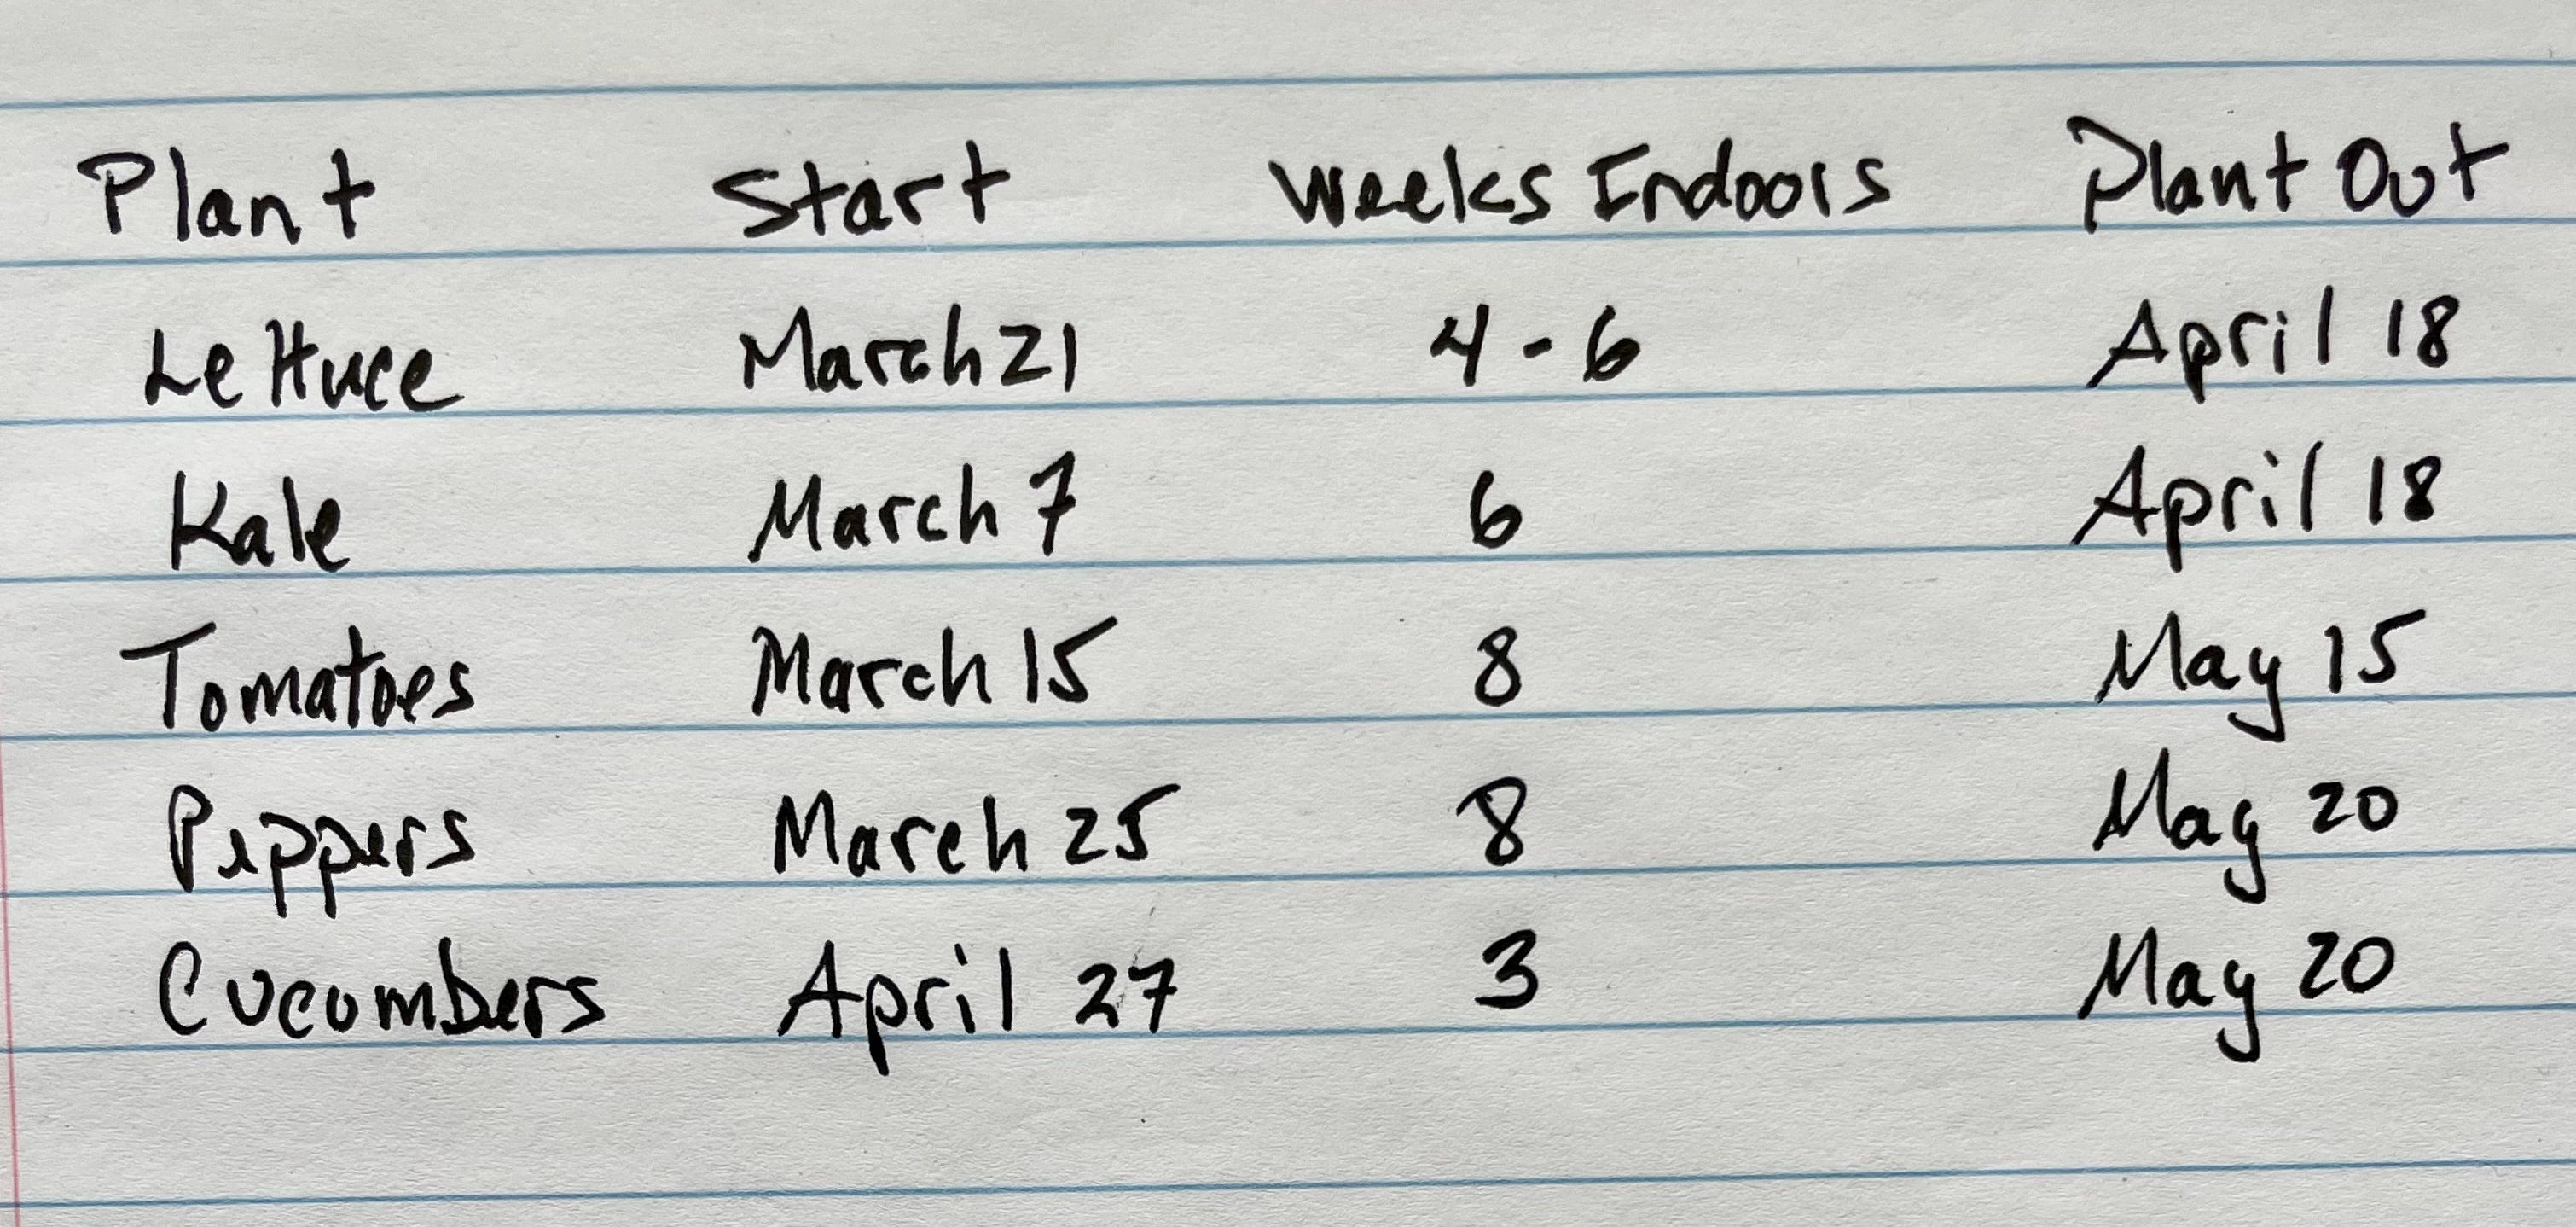 Plant Start Weeks Indoors Plant Out
Lettuce March 21 4-6 April 18
Kale March 7 6 April 18
Tomatoes March 15 8 May 15
Peppers March 25 8 May 20
Cucumbers April 27 3 May 20